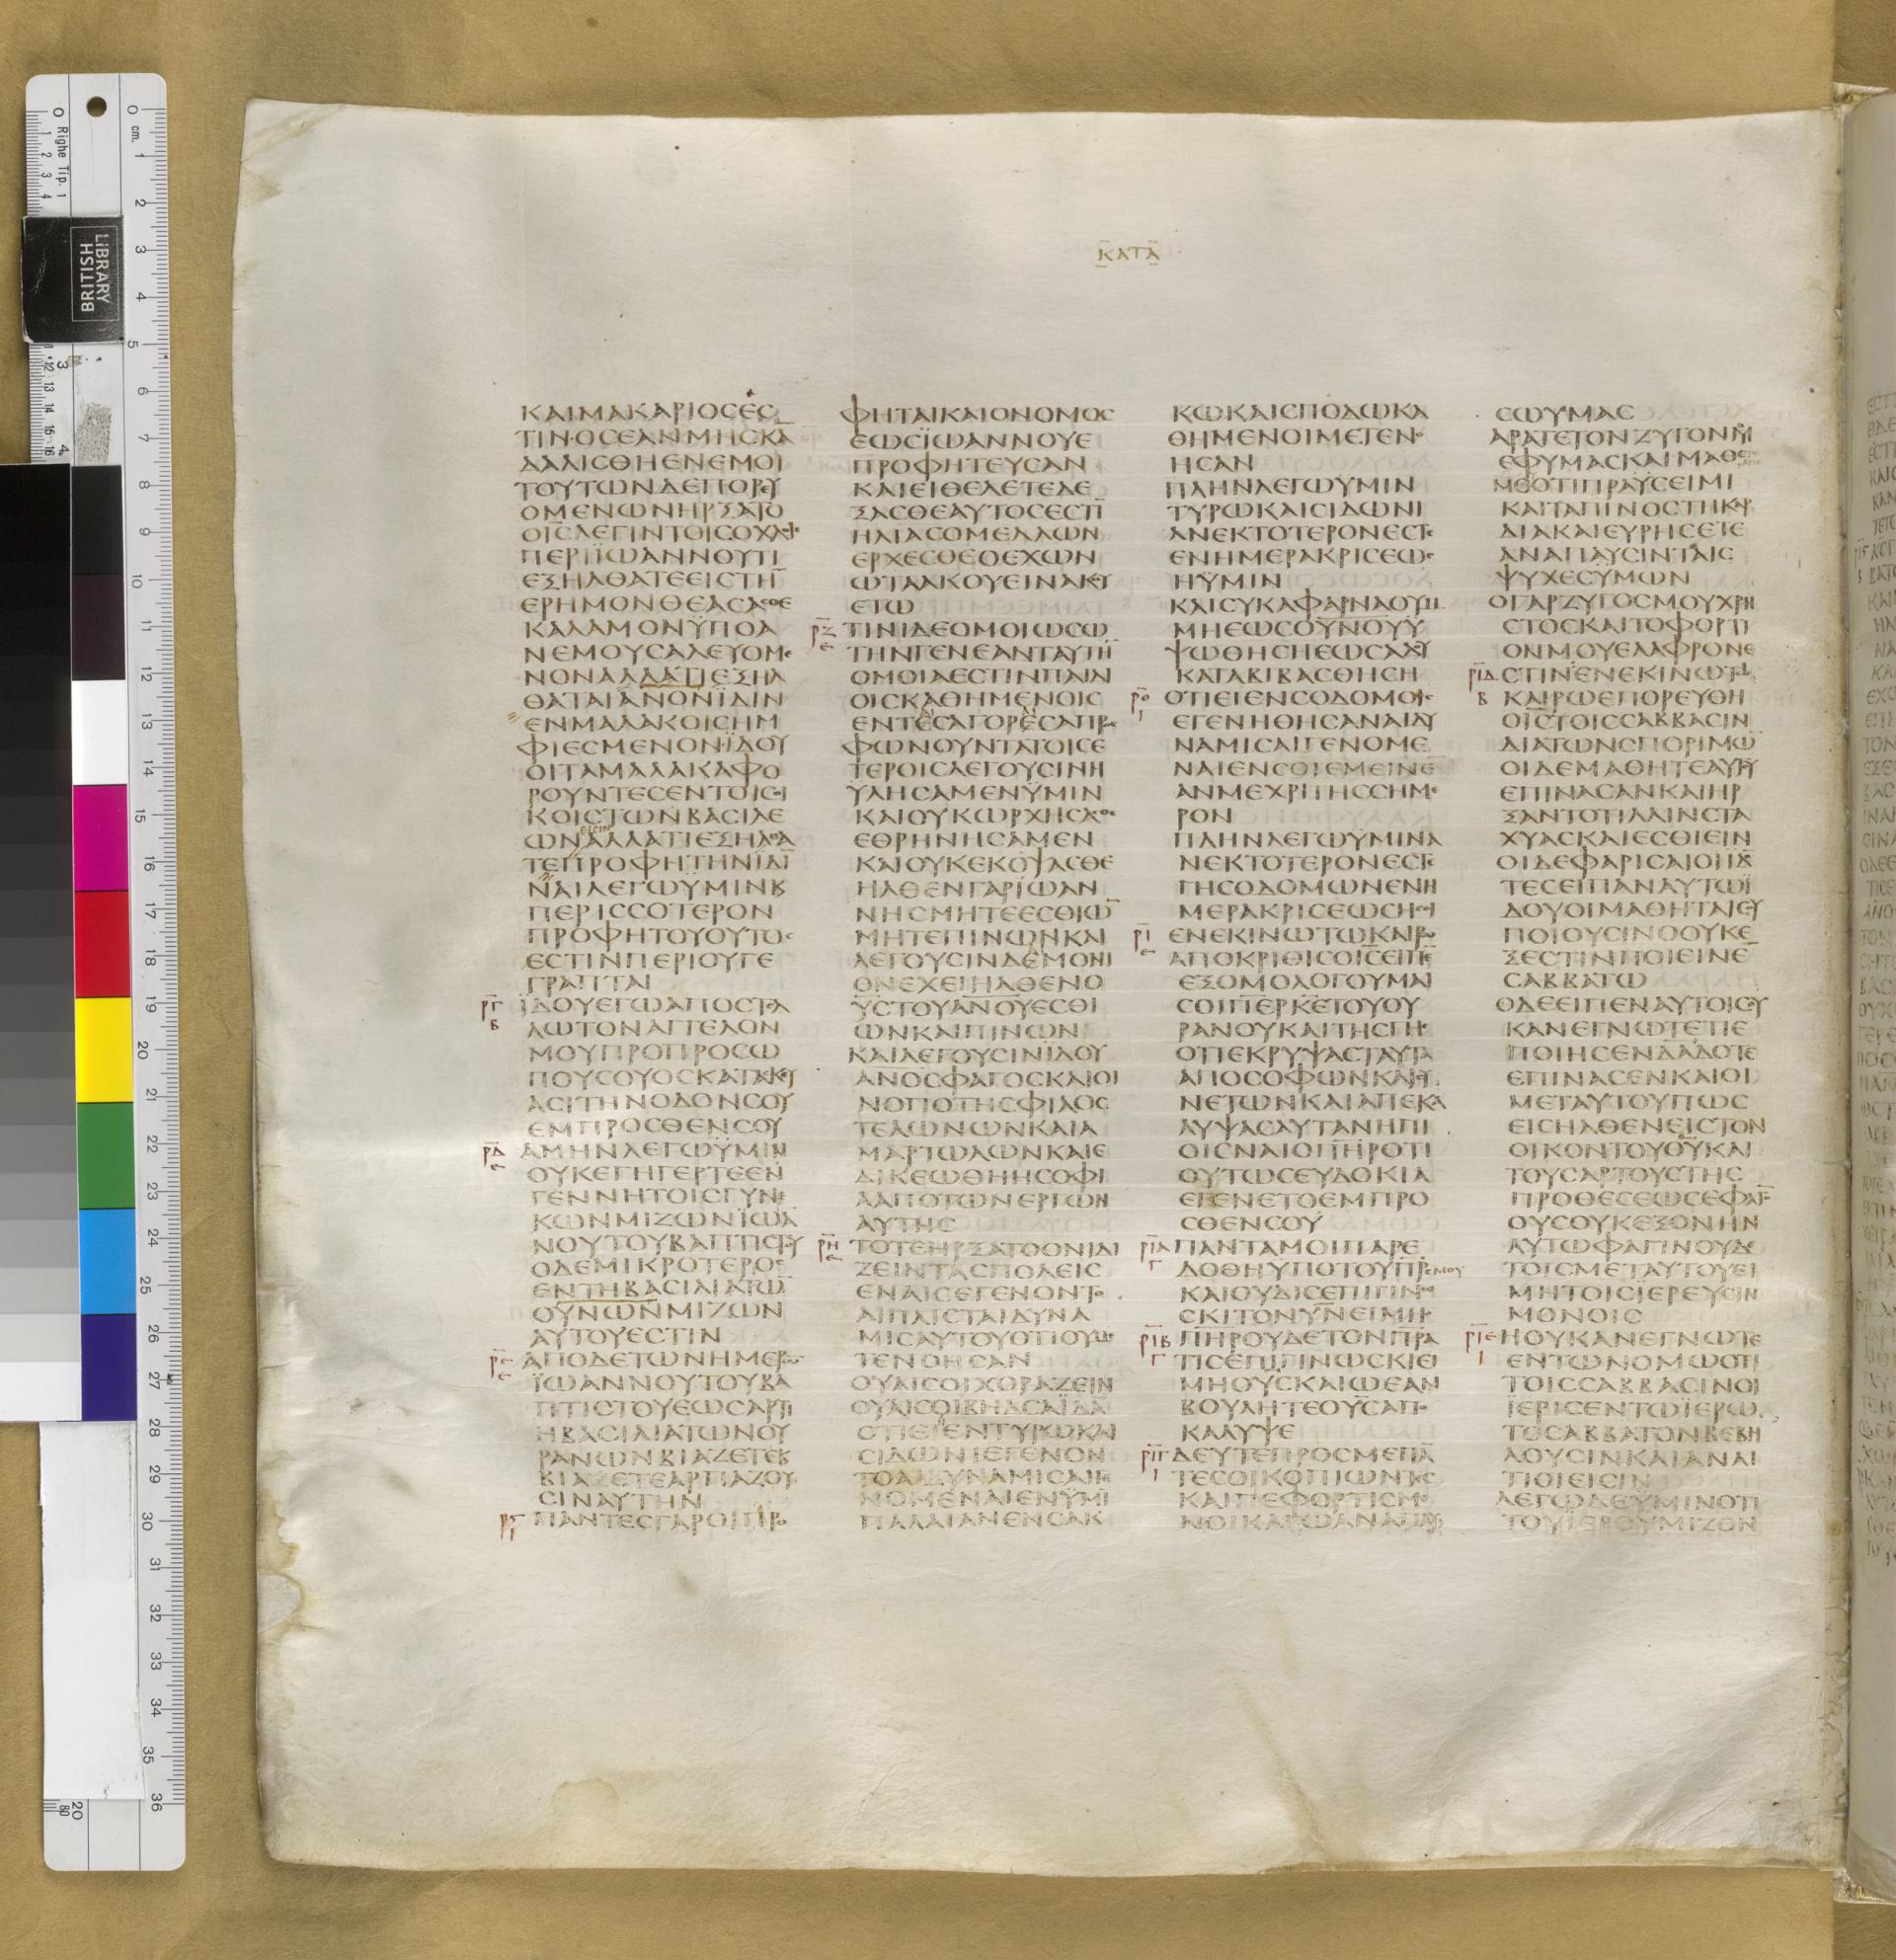 ΚΑΤΑ
ΚΑΙΜΑΚΑΡΙΟϹΕϹ
ΤΙΝΟϹΕΑΝΜΗϹΚΑ̅
ΔΑΛΙϹΘΗΕΝΕΜΟΙ
ΤΟΥΤΩΝΔΕΠΟΡΕΥ
ΟΜΕΝΩΝΗΡΞΑΤΟ
ΟΙ̅Ϲ̅ΛΕΓΙΝΤΟΙϹΟΧΛΟΙϹ
ΠΕΡΙΪΩΑΝΝΟΥΤΙ
ΕΞΗΛΘΑΤΕΕΙϹΤΗ̅
ΕΡΗΜΟΝΘΕΑϹΑϹΘΕ
ΚΑΛΑΜΟΝΫΠΟΑ
ΝΕΜΟΥϹΑΛΕΥΟΜΕ
ΝΟΝΑΛΛΑΤΙΕΞΗΛ
ΘΑΤΑΙΑ̅Ν̅Ο̅Ν̅ΪΔΙΝ
ΕΝΜΑΛΑΚΟΙϹΗΜ
ΦΙΕϹΜΕΝΟΝΪΔΟΥ
ΟΙΤΑΜΑΛΑΚΑΦΟ
ΡΟΥΝΤΕϹΕΝΤΟΙϹΟΙ
ΚΟΙϹΤΩΝΒΑϹΙΛΕ
ΕΙϹΙΝ
ΩΝΑΛΛΑΤΙΕΞΗΛΘΑ
ΤΕΠΡΟΦΗΤΗΝΪΔΙ̅
ΝΑΙΛΕΓΩΫΜΙΝΚ
ΠΕΡΙϹϹΟΤΕΡΟΝ
ΠΡΟΦΗΤΟΥΟΥΤΟϹ
ΕϹΤΙΝΠΕΡΙΟΥΓΕ
ΓΡΑΠΤΑΙ
Ρ̅Γ̅
Β
ΪΔΟΥΕΓΩΑΠΟϹΤΕΛ
ΛΩΤΟΝΑΓΓΕΛΟΝ
ΜΟΥΠΡΟΠΡΟϹΩ
ΠΟΥϹΟΥΟϹΚΑΤΑϹΚΕΥ
ΑϹΙΤΗΝΟΔΟΝϹΟΥ
ΕΜΠΡΟϹΘΕΝϹΟΥ
Ρ̅Δ̅
Ε
ΑΜΗΝΛΕΓΩΫΜΙΝ
ΟΥΚΕΓΗΓΕΡΤΕΕΝ
ΓΕΝΝΗΤΟΙϹΓΥΝΑΙ
ΚΩΝΜΙΖΩΝΪΩΑ̅
ΝΟΥΤΟΥΒΑΠΤΙϹΤΟΥ
ΟΔΕΜΙΚΡΟΤΕΡΟϹ
ΕΝΤΗΒΑϹΙΛΙΑΤΩ̅
ΟΥ̅Ν̅Ω̅Ν̅ΜΙΖΩΝ
ΑΥΤΟΥΕϹΤΙΝ
Ρ̅Ε̅
Ε
ΑΠΟΔΕΤΩΝΗΜΕΡΩ̅
ΪΩΑΝΝΟΥΤΟΥΒΑ
ΠΤΙϹΤΟΥΕΩϹΑΡΤΙ
ΗΒΑϹΙΛΙΑΤΩΝΟΥ
ΡΑΝΩΝΒΙΑΖΕΤΕΚ
ΒΙΑΖΕΤΕΑΡΠΑΖΟΥ
ϹΙΝΑΥΤΗΝ
Ρ̅Ϛ̅
Ι
ΠΑΝΤΕϹΓΑΡΟΙΠΡΟ
ΦΗΤΑΙΚΑΙΟΝΟΜΟϹ
ΕΩϹΪΩΑΝΝΟΥΕ
ΠΡΟΦΗΤΕΥϹΑΝ
ΚΑΙΕΙΘΕΛΕΤΕΔΕ
ΞΑϹΘΕΑΥΤΟϹΕϹΤΙ̅
ΗΛΙΑϹΟΜΕΛΛΩΝ
ΕΡΧΕϹΘΕΟΕΧΩΝ
ΩΤΑΑΚΟΥΕΙΝΑΚΟΥ
ΕΤΩ
Ρ̅Ζ̅
Ε
ΤΙΝΙΔΕΟΜΟΙΩϹΩ
ΤΗΝΓΕΝΕΑΝΤΑΥΤΗ̅
ΟΜΟΙΑΕϹΤΙΝΠΑΙΔΙ
ΟΙϹΚΑΘΗΜΕΝΟΙϹ
ΕΝΤΕϹΑΓΟΡΕϹΑΠΡΟϹ
ΦΩΝΟΥΝΤΑΤΟΙϹΕ
ΤΕΡΟΙϹΛΕΓΟΥϹΙΝΗ
ΫΛΗϹΑΜΕΝΫΜΙΝ
ΚΑΙΟΥΚΩΡΧΗϹΑϹΘΕ
ΕΘΡΗΝΗϹΑΜΕΝ
ΚΑΙΟΥΚΕΚΟΨΑϹΘΕ
ΗΛΘΕΝΓΑΡΪΩΑΝ
ΝΗϹΜΗΤΕΕϹΘΙΩ̅
ΜΗΤΕΠΙΝΩΝΚΑΙ
ΛΕΓΟΥϹΙΝΔΕΜΟΝΙ
ΟΝΕΧΕΙΗΛΘΕΝΟ
Υ̅Ϲ̅ΤΟΥΑ̅Ν̅Ο̅Υ̅ΕϹΘΙ
ΩΝΚΑΙΠΙΝΩΝ
ΚΑΙΛΕΓΟΥϹΙΝΪΔΟΥ
Α̅Ν̅Ο̅Ϲ̅ΦΑΓΟϹΚΑΙΟΙ
ΝΟΠΟΤΗϹΦΙΛΟϹ
ΤΕΛΩΝΩΝΚΑΙΑ
ΜΑΡΤΩΛΩΝΚΑΙΕ
ΔΙΚΕΩΘΗΗϹΟΦΙ
ΑΑΠΟΤΩΝΕΡΓΩΝ
ΑΥΤΗϹ
Ρ̅Η̅
Ε
ΤΟΤΕΗΡΞΑΤΟΟΝΙΔΙ
ΖΕΙΝΤΑϹΠΟΛΕΙϹ
ΕΝΑΙϹΕΓΕΝΟΝΤΟ
ΑΙΠΛΙϹΤΑΙΔΥΝΑ
ΜΙϹΑΥΤΟΥΟΤΙΟΥΜΕ
ΤΕΝΟΗϹΑΝ
ΟΥΑΙϹΟΙΧΟΡΑΖΕΙΝ
ΟΥΑΙϹΟΙΒΗΔϹΑΪΔΑ
ΟΤΙΕΙΕΝΤΥΡΩΚΑΙ
ϹΙΔΩΝΙΕΓΕΝΟΝ
ΤΟΑΙΔΥΝΑΜΙϹΑΙΓΕ
ΝΟΜΕΝΑΙΕΝΫΜΙ̅
ΠΑΛΑΙΑΝΕΝϹΑΚ
ΚΩΚΑΙϹΠΟΔΩΚΑ
ΘΗΜΕΝΟΙΜΕΤΕΝΟ
ΗϹΑΝ
ΠΛΗΝΛΕΓΩΫΜΙΝ
ΤΥΡΩΚΑΙϹΙΔΩΝΙ
ΑΝΕΚΤΟΤΕΡΟΝΕϹΤΑΙ
ΕΝΗΜΕΡΑΚΡΙϹΕΩϹ
ΗΫΜΙΝ
ΚΑΙϹΥΚΑΦΑΡΝΑΟΥΜ
ΜΗΕΩϹΟΥ̅Ν̅Ο̅Υ̅Υ
ΨΩΘΗϹΗΕΩϹΑΔΟΥ
ΚΑΤΑΒΙΒΑϹΘΗϹΗ
Ρ̅Θ̅
Ι
ΟΤΙΕΙΕΝϹΟΔΟΜΟΙϹ
ΕΓΕΝΗΘΗϹΑΝΑΙΔΥ
ΝΑΜΙϹΑΙΓΕΝΟΜΕ
ΝΑΙΕΝϹΟΙΕΜΕΙΝΕ
ΑΝΜΕΧΡΙΤΗϹϹΗΜΕ
ΡΟΝ
ΠΛΗΝΛΕΓΩΫΜΙΝΑ
ΝΕΚΤΟΤΕΡΟΝΕϹΤΕ
ΓΗϹΟΔΟΜΩΝΕΝΗ
ΜΕΡΑΚΡΙϹΕΩϹΗϹΟΙ
Ρ̅Ι̅
Ε
ΕΝΕΚΙΝΩΤΩΚΑΙΡΩ
ΑΠΟΚΡΙΘΙϹΟΙ̅Ϲ̅ΕΙΠΕ
ΕΞΟΜΟΛΟΓΟΥΜΑΙ
ϹΟΙΠ̅Ε̅Ρ̅Κ̅Ε̅ΤΟΥΟΥ
ΡΑΝΟΥΚΑΙΤΗϹΓΗϹ
ΟΤΙΕΚΡΥΨΑϹΤΑΥΤΑ
ΑΠΟϹΟΦΩΝΚΑΙϹΥ
ΝΕΤΩΝΚΑΙΑΠΕΚΑ
ΛΥΨΑϹΑΥΤΑΝΗΠΙ
ΟΙϹΝΑΙΟΠ̅Η̅Ρ̅ΟΤΙ
ΟΥΤΩϹΕΥΔΟΚΙΑ
ΕΓΕΝΕΤΟΕΜΠΡΟ
ϹΘΕΝϹΟΥ
Ρ̅Ι̅Α̅
Γ
ΠΑΝΤΑΜΟΙΠΑΡΕ
ΔΟΘΗΥΠΟΤΟΥΠ̅Ρ̅Ϲ̅ΜΟΥ
ΚΑΙΟΥΔΙϹΕΠΙΓΙΝΩ
ϹΚΙΤΟΝΥ̅Ν̅ΕΙΜΗΟ
Ρ̅Ι̅Β̅
Γ
Π̅Η̅Ρ̅ΟΥΔΕΤΟΝΠ̅Ρ̅Α̅
ΤΙϹΕΠΙΓΙΝΩϹΚΙΕΙ
ΜΗΟΥ̅Ϲ̅ΚΑΙΩΕΑΝ
ΒΟΥΛΗΤΕΟΥ̅Ϲ̅ΑΠΟ
ΚΑΛΥΨΕ
Ρ̅Ι̅Γ̅
Ι
ΔΕΥΤΕΠΡΟϹΜΕΠΑ̅
ΤΕϹΟΙΚΟΠΙΩΝΤΕϹ
ΚΑΙΠΕΦΟΡΤΙϹΜΕ
ΝΟΙΚΑΓΩΑΝΑΠΑΥ
ϹΩΫΜΑϹ
ΑΡΑΤΕΤΟΝΖΥΓΟΝΜΟΥ
ΕΦΥΜΑϹΚΑΙΜΑΘΕ
ΟΤΙΠΡΑΫϹΕΙΜΙ
ΚΑΙΤΑΠΙΝΟϹΤΗΚΑΡ
ΔΙΑΚΑΙΕΥΡΗϹΕΤΕ
ΑΝΑΠΑΥϹΙΝΤΑΙϹ
ΨΥΧΕϹΫΜΩΝ
ΟΓΑΡΖΥΓΟϹΜΟΥΧΡΗ
ϹΤΟϹΚΑΙΤΟΦΟΡΤΙ
ΟΝΜΟΥΕΛΑΦΡΟΝΕ
Ρ̅Ι̅Δ̅
Β
ϹΤΙΝΕΝΕΚΙΝΩΤΩ
ΚΑΙΡΩΕΠΟΡΕΥΘΗ
ΟΙ̅Ϲ̅ΤΟΙϹϹΑΒΒΑϹΙΝ
ΔΙΑΤΩΝϹΠΟΡΙΜΩ̅
ΟΙΔΕΜΑΘΗΤΕΑΥΤΟΥ
ΕΠΙΝΑϹΑΝΚΑΙΗΡ
ΞΑΝΤΟΤΙΛΛΙΝϹΤΑ
ΧΥΑϹΚΑΙΕϹΘΙΕΙΝ
ΟΙΔΕΦΑΡΙϹΑΙΟΙΪΔΟ̅
ΤΕϹΕΙΠΑΝΑΥΤΩ
ΙΔΟΥΟΙΜΑΘΗΤΑΙϹΟΥ
ΠΟΙΟΥϹΙΝΟΟΥΚΕ
ΞΕϹΤΙΝΠΟΙΕΙΝΕ̅
ϹΑΒΒΑΤΩ
ΟΔΕΕΙΠΕΝΑΥΤΟΙϹΟΥ
ΚΑΝΕΓΝΩΤΕΤΙΕ
ΠΟΙΗϹΕΝΔΑΔΟΤΕ
ΕΠΙΝΑϹΕΝΚΑΙΟΙ
ΜΕΤΑΥΤΟΥΠΩϹ
ΕΙϹΗΛΘΕΝΕΙϹΤΟΝ
ΟΙΚΟΝΤΟΥΘ̅Υ̅ΚΑΙ
ΤΟΥϹΑΡΤΟΥϹΤΗϹ
ΠΡΟΘΕϹΕΩϹΕΦΑΓ
ΟΥϹΟΥΚΕΞΟΝΗΝ
ΑΥΤΩΦΑΓΙΝΟΥΔΕ
ΤΟΙϹΜΕΤΑΥΤΟΥΕΙ
ΜΗΤΟΙϹΪΕΡΕΥϹΙΝ
ΜΟΝΟΙϹ
Ρ̅Ι̅Ε̅
Ι
ΗΟΥΚΑΝΕΓΝΩΤΕ
ΕΝΤΩΝΟΜΩΟΤΙ
ΤΟΙϹϹΑΒΒΑϹΙΝΟΙ
ΪΕΡΙϹΕΝΤΩΪΕΡΩ
ΤΟϹΑΒΒΑΤΟΝΒΕΒΗ
ΛΟΥϹΙΝΚΑΙΑΝΑΙ
ΤΙΟΙΕΙϹΙΝ
ΛΕΓΩΔΕΫΜΙΝΟΤΙ
ΤΟΥΪΕΡΟΥΜΙΖΟΝ
BRITISH
LIBRARY
cm.
Righe Tip. 1